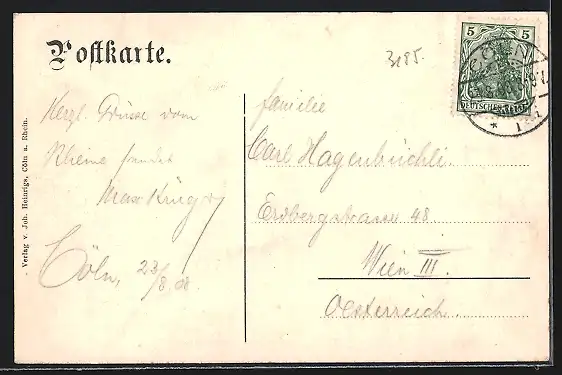 Postkarte.
3185.
5 5
DEUTSCHES REICH
CÖLN
Verlag v. Joh. Heinrigs, Cöln a. Rhein.
Herzl. Grüsse vom
Rheine sendet
Max Krüger
Cöln, 23/8.08
Familie
Carl Hagenbüchli
Erdbergstrasse 48.
Wien III.
Oesterreich.